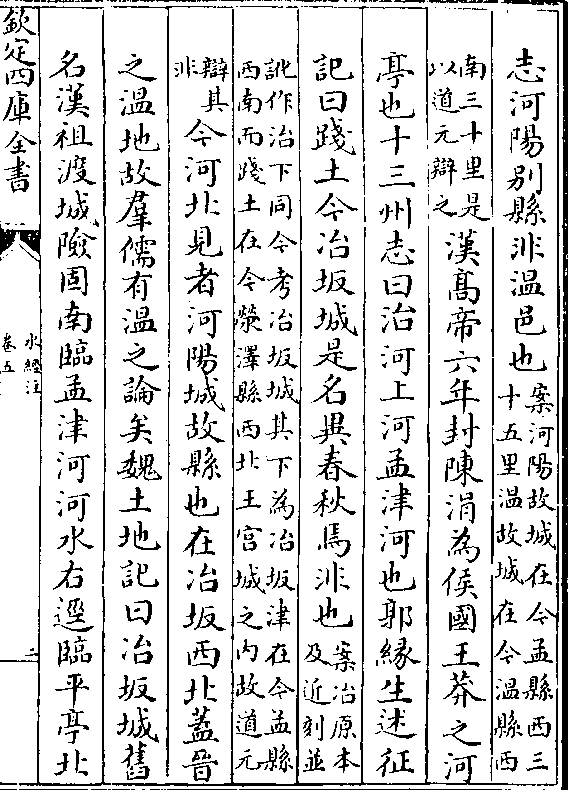 志河陽别縣非温邑也案河陽故城在今孟縣西三
十五里温故城在今温縣西
南三十里是
以道元辯之漢髙帝六年封陳涓為侯國王莽之河
亭也十三州志曰治河上河孟津河也郭緣生述征
記曰踐土今冶坂城是名異春秋焉非也案冶原本
及近刻並
訛作治下同今考冶坂城其下為冶坂津在今孟縣
西南而踐土在今滎澤縣西北王宫城之内故道元
辯其
非今河北見者河陽城故縣也在冶坂西北蓋晉
之温地故羣儒有温之論矣魏土地記曰冶坂城舊
名漢祖渡城險固南臨孟津河河水右逕臨平亭北
欽定四庫全書
水經注
卷五
三